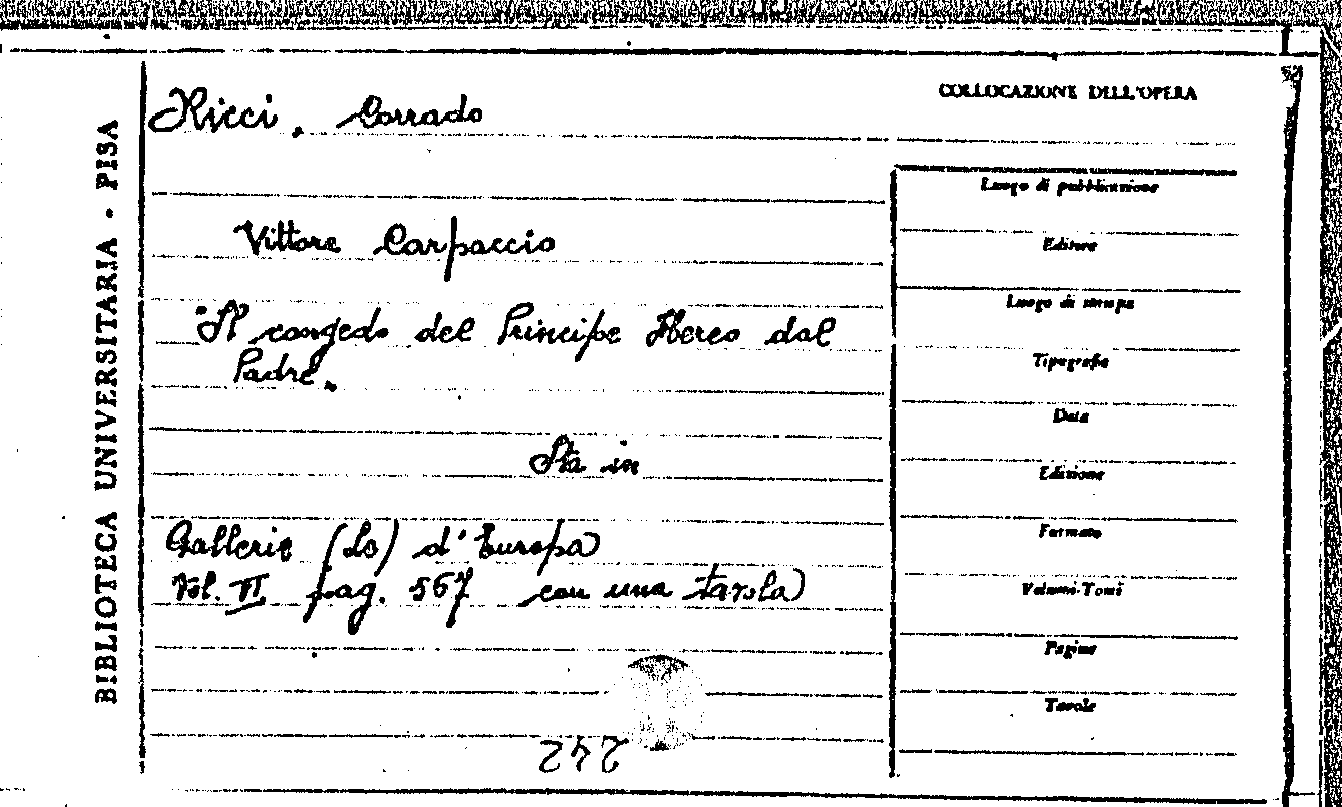 BIBLIOTECA UNIVERSITARIA - PISA
Ricci, Corrado
COLLOCAZIONE DELL'OPERA
Vittore Carpaccio
"Il congedo del Principe Hereo dal
Padre"
Sta in
Gallerie (Le) d'Europa
Vol. VI pag. 567 con una tavola
242
Luogo di pubblicazione
Editore
Luogo di stampa
Tipografia
Data
Edizione
Formato
Volumi-Tomi
Pagine
Tavole